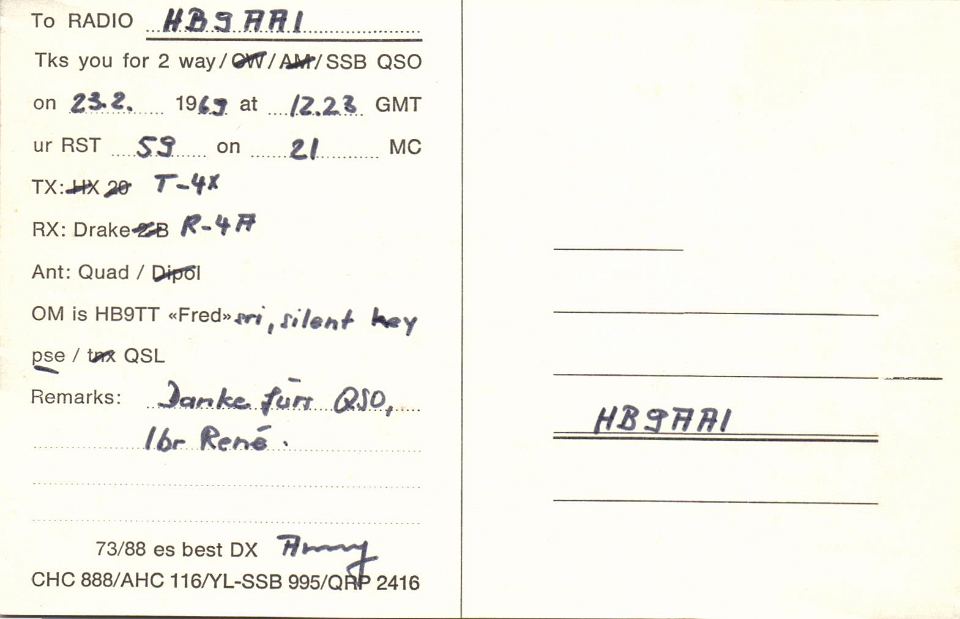 To RADIO HB9AAI
Tks you for 2 way/CW/AM/SSB QSO
on 23.2. 1969 at 12.23 GMT
ur RST 59 on 21 MC
TX: HX 20 T-4X
RX: Drake 2-B R-4A
Ant: Quad / Dipol
OM is HB9TT «Fred» sri, silent key
pse / tnx QSL
Remarks: Danke fürs QSO,
lbr René.
73/88 es best DX
CHC 888/AHC 116/YL-SSB 995/QRP 2416
HB9AAI